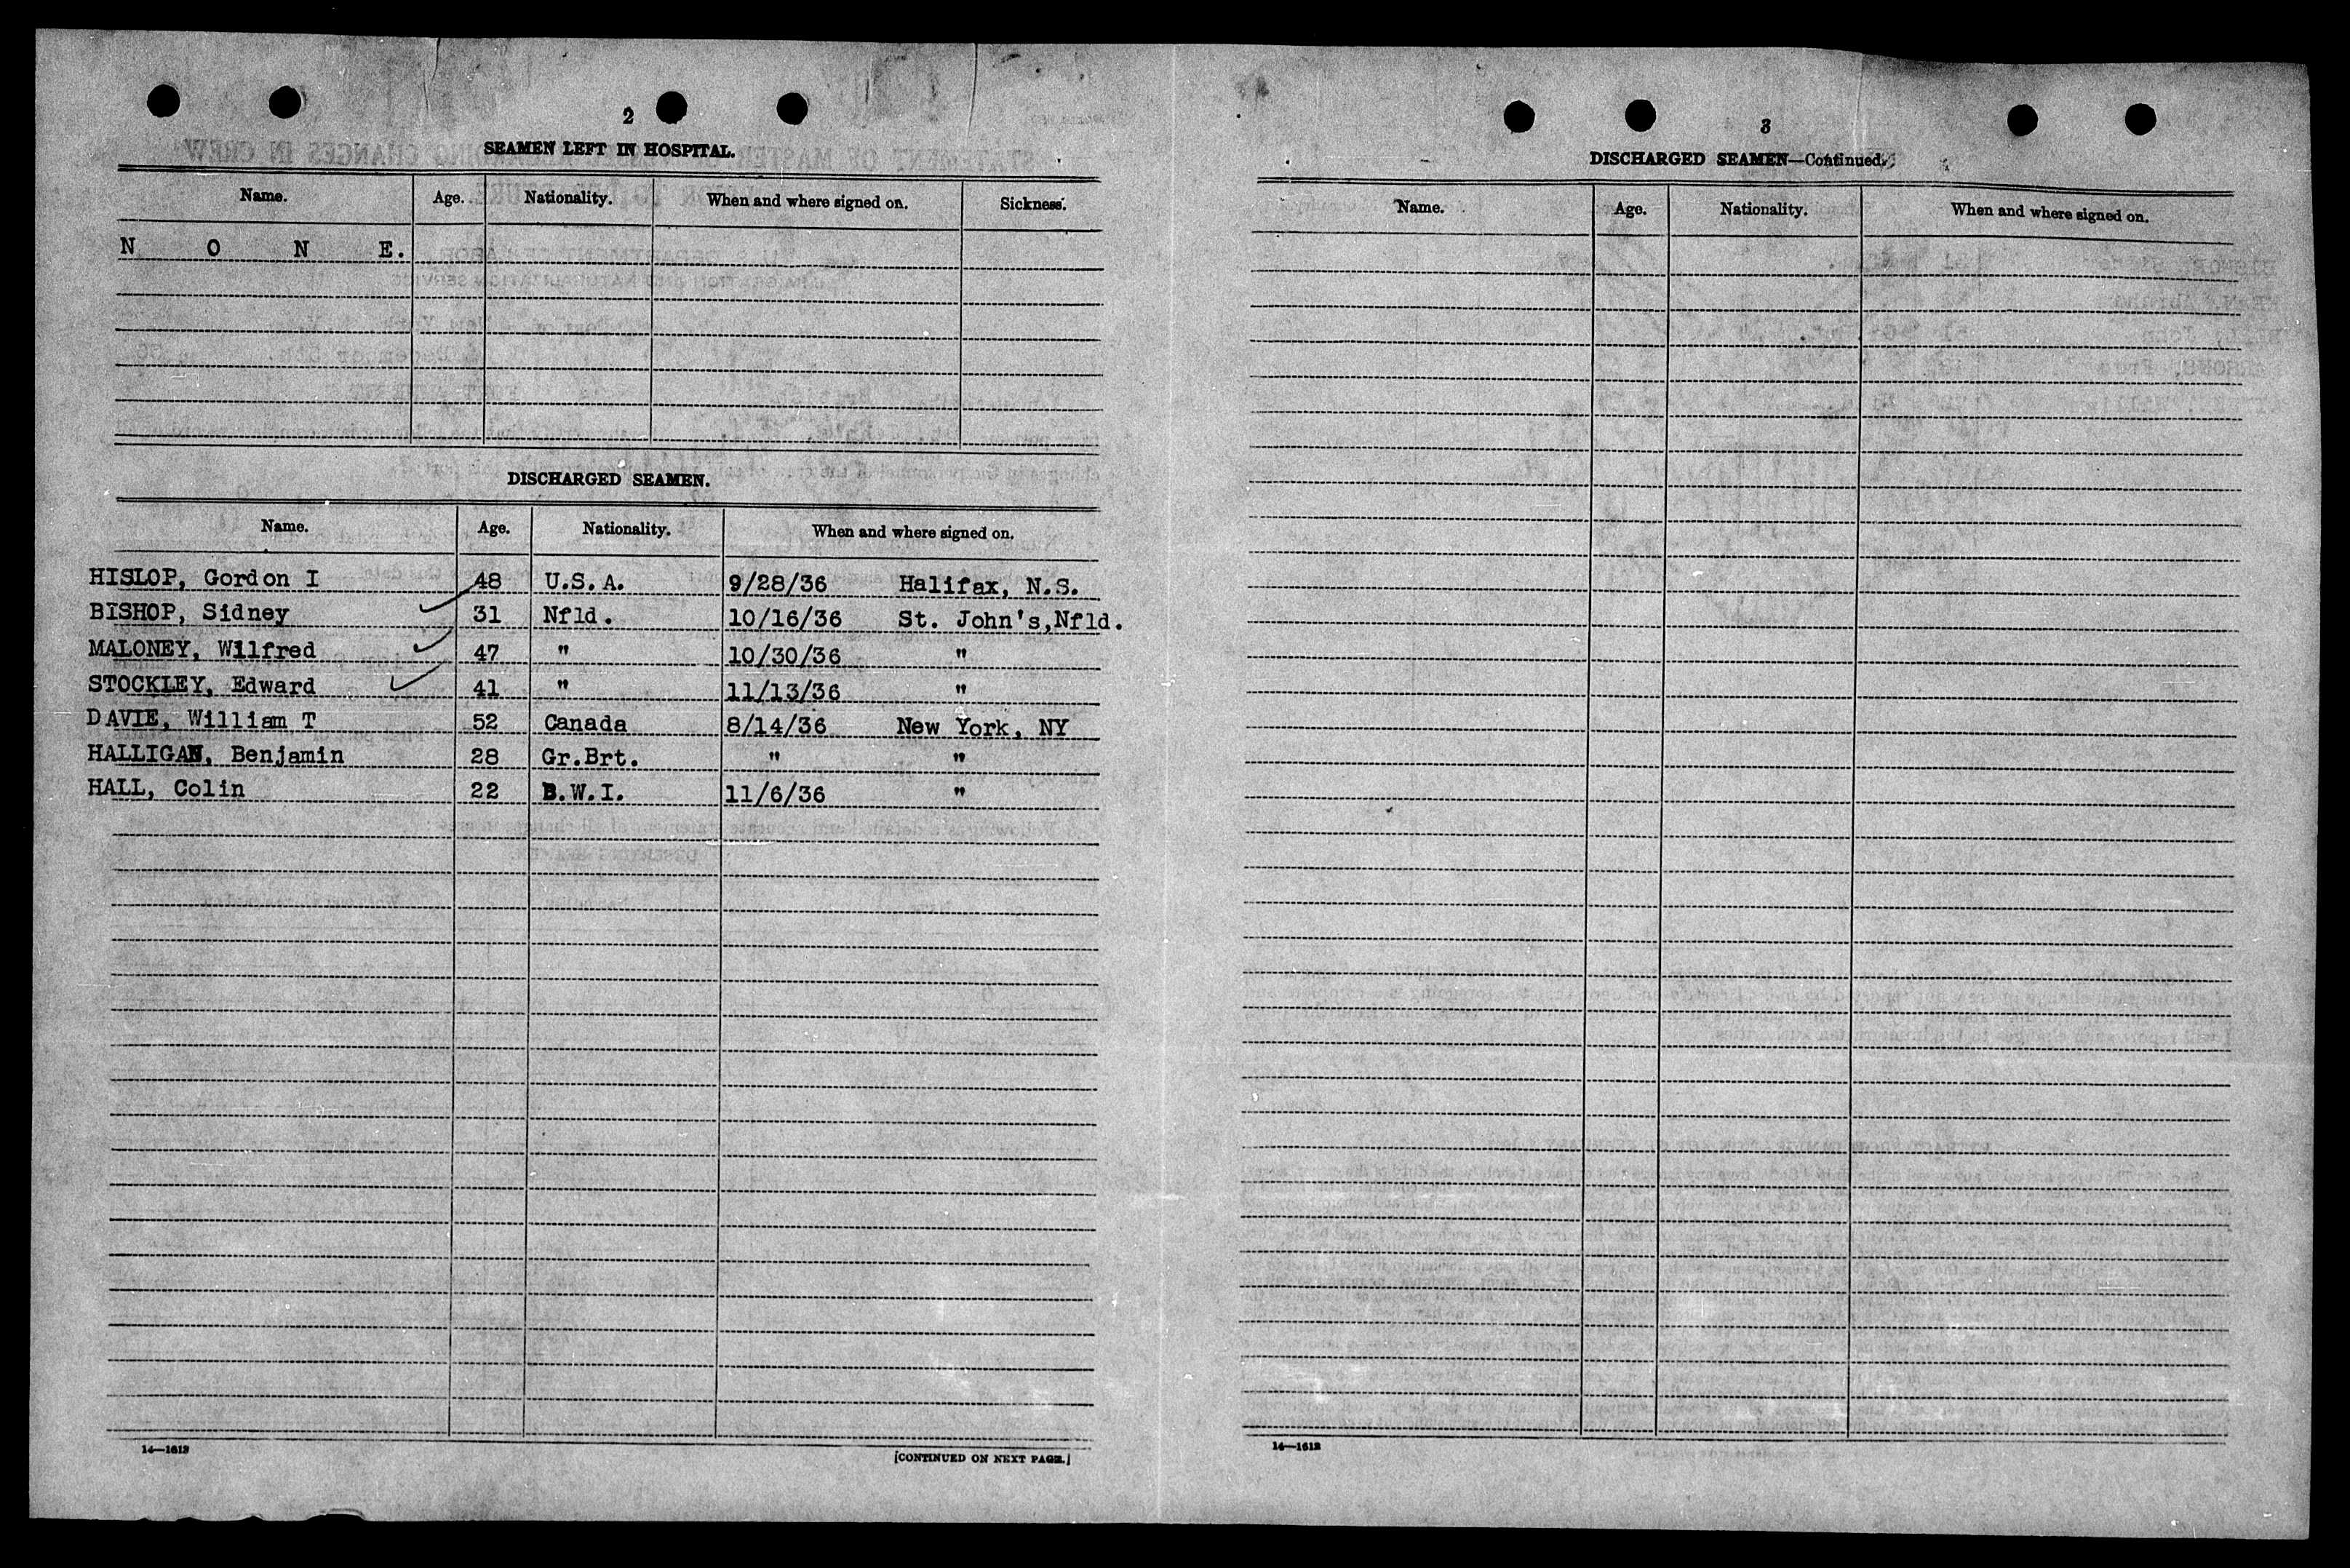 2
SEAMEN LEFT IN HOSPITAL.
Name. Age. Nationality. When and where signed on. Sickness.
N O N E.
DISCHARGED SEAMEN.
Name. Age. Nationality. When and where signed on.
HISLOP, Gordon I 48 U.S.A. 9/28/36 Halifax, N.S.
BISHOP, Sidney 31 Nfld. 10/16/36 St. John's,Nfld.
MALONEY, Wilfred 47 " 10/30/36 "
STOCKLEY, Edward 41 " 11/13/36 "
DAVIE, William T 52 Canada 8/14/36 New York, NY
HALLIGAN, Benjamin 28 Gr.Brt. " "
HALL, Colin 22 B.W.I. 11/6/36 "
14—1612
[CONTINUED ON NEXT PAGE.]
3
DISCHARGED SEAMEN—Continued.
Name. Age. Nationality. When and where signed on.
14—1612